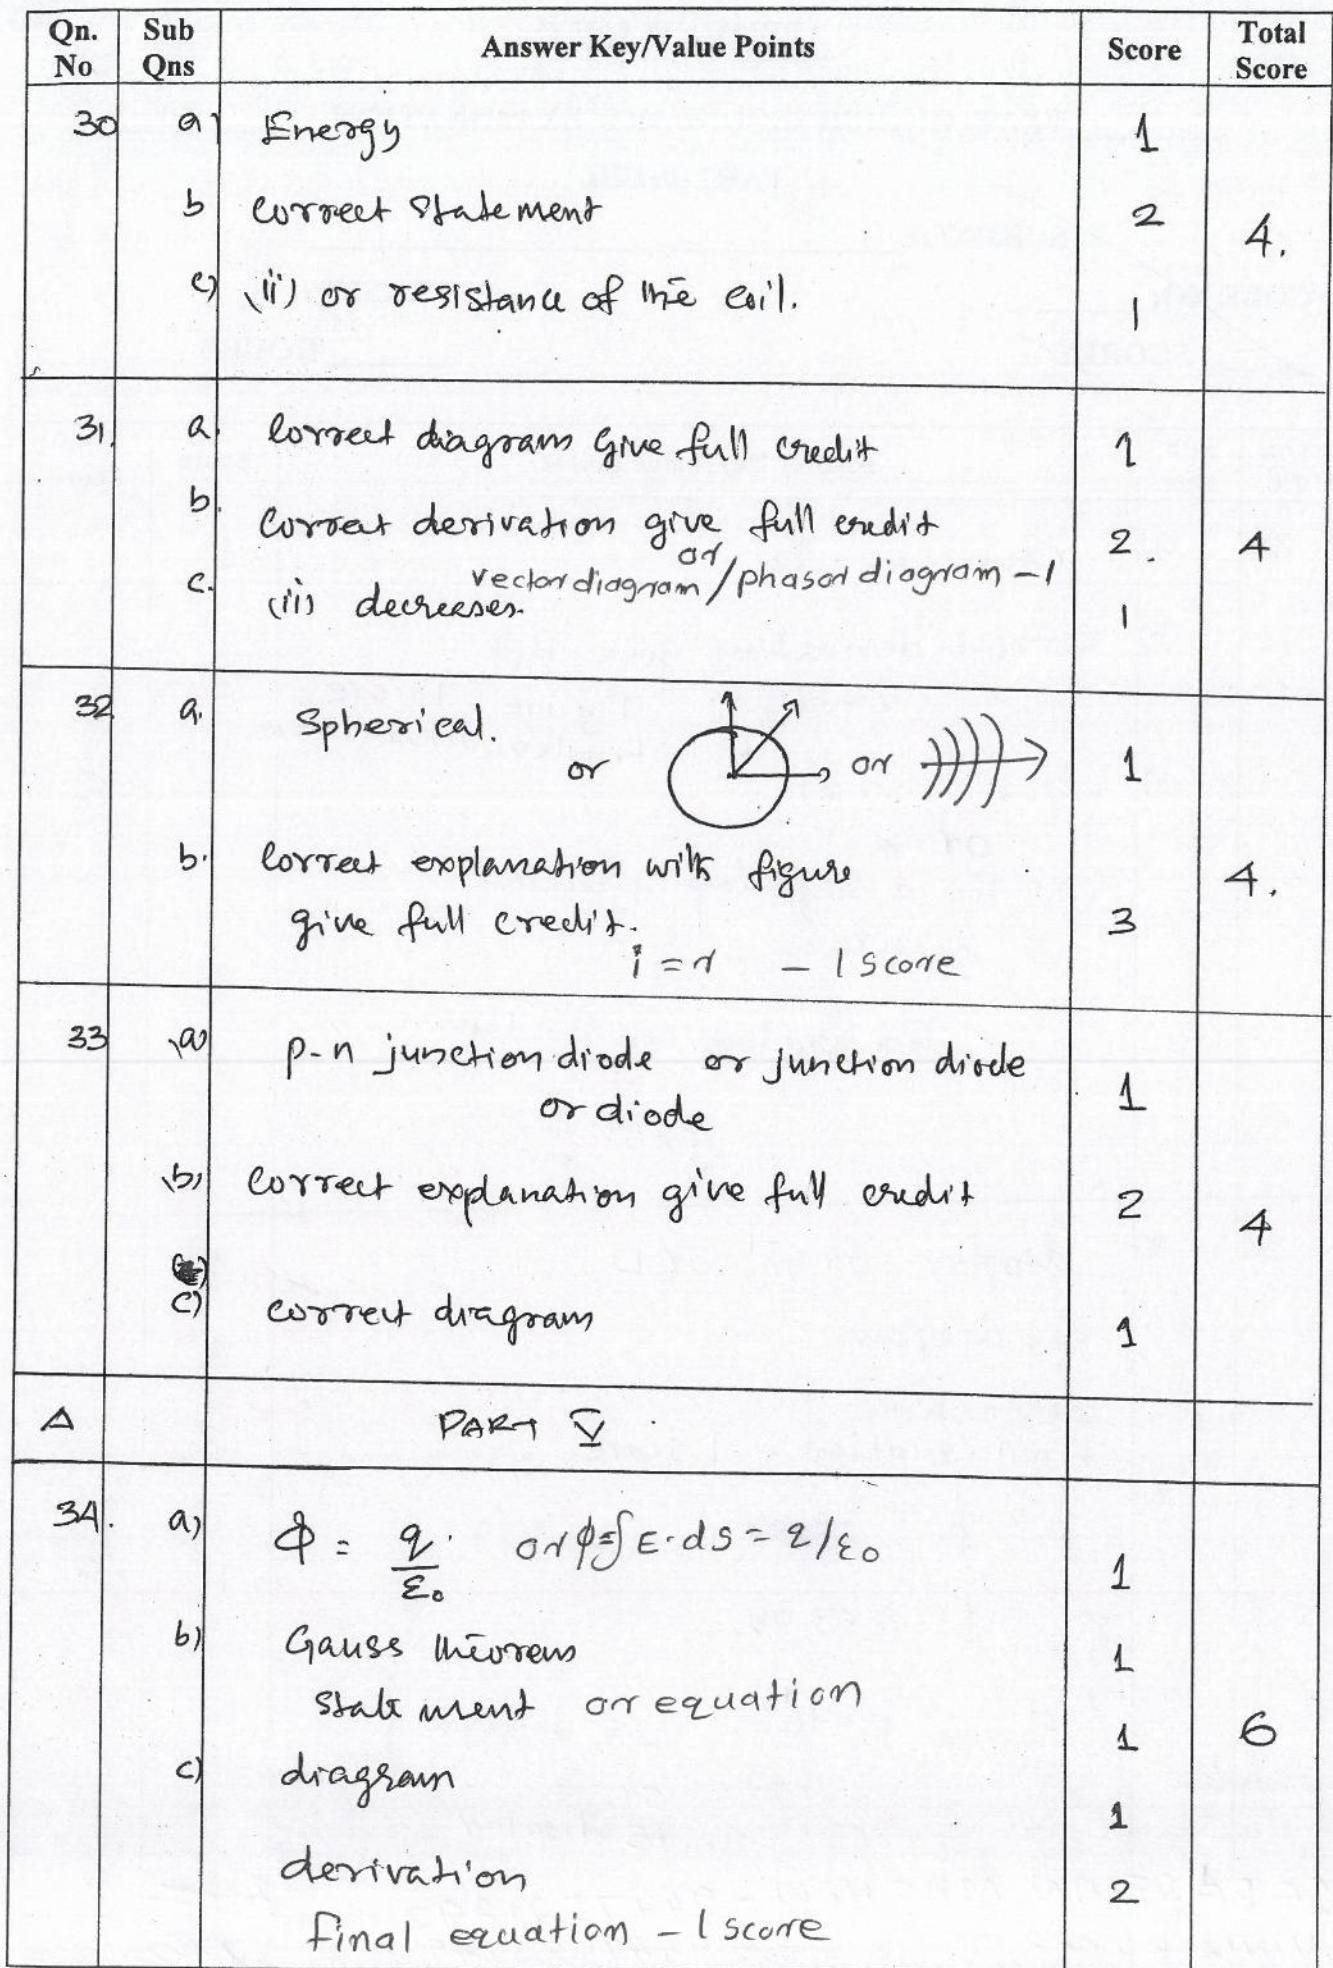 Qn. No Sub Qns Answer Key/Value Points Score Total Score
30 a) Energy 1
b correct statement 2 4.
c) (ii) or resistance of the coil. 1
31. a. Correct diagram give full credit 1
b. Correct derivation give full credit 2. 4
or
vector diagram / phasor diagram - 1
c. (ii) decreases. 1
32 a. Spherical. or or 1
b. Correct explanation with figure 4.
give full credit. 3
i = r - 1 score
33 (a) p-n junction diode or junction diode 1
or diode
(b) Correct explanation give full credit 2 4
c) correct diagram 1
A PART V
34. a) Φ = q/ε₀ or ϕ=∫E.ds = q/ε₀ 1
b) Gauss theorem 1
statement or equation 1 6
c) diagram 1
derivation 2
final equation - 1 score